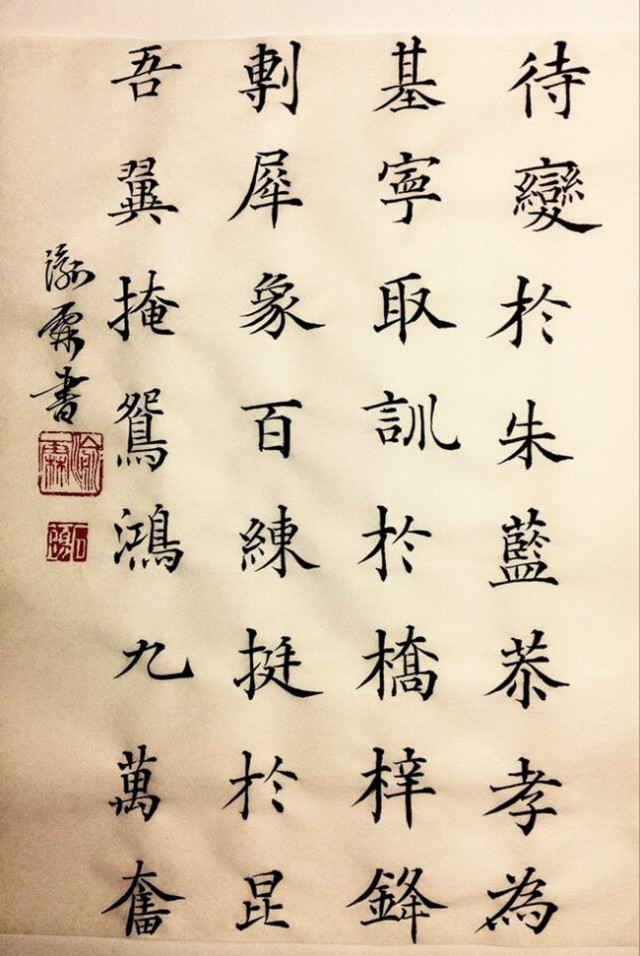 待變於朱藍恭孝為
基寧取訓於橋梓鋒
剸犀象百練挺於昆
吾翼掩鴛鴻九萬奮
渝霖書
渝霖